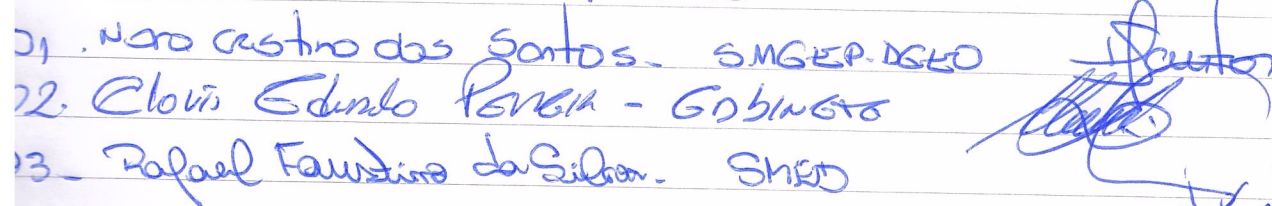 01. Nara Cristina dos Santos - SMGEP-DGED Santos
02. Clovis Eduardo Pereira - GABINETE
03 - Rafael Faustino da Silva - SMED